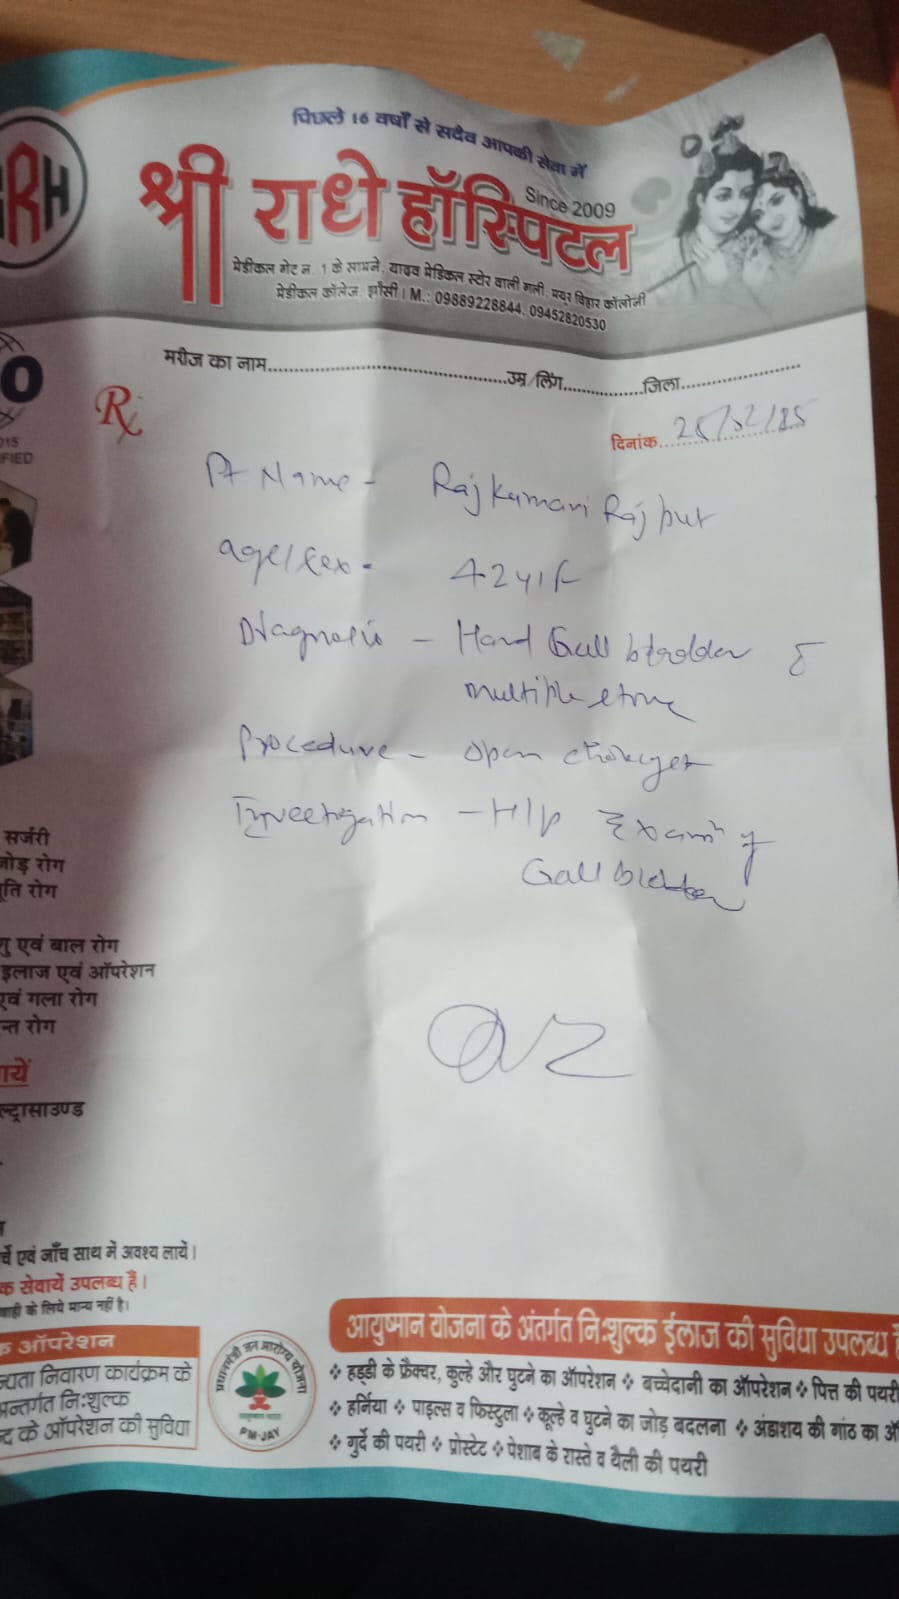 पिछले 16 वर्षों से सदैव आपकी सेवा में
SRH
श्री राधे हॉस्पिटल
Since 2009
मेडीकल गेट न. 1 के सामने, यादव मेडिकल स्टोर वाली गली, मयूर विहार कॉलोनी
मेडीकल कॉलेज, झाँसी। M.: 09889228844, 09452820530
मरीज का नाम..........उम्र/लिंग..........जिला..........
O
015
FIED
Rx
दिनांक
Pt Name - Raj Kumari Rajput
age/sex - 42y/F
Diagnosis - Hard Gall bladder c
multiple stone
Procedure - open
Investigation - H/P Examn of
Gall bladder
सर्जरी
जोड़ रोग
ूति रोग
ु एवं बाल रोग
इलाज एवं ऑपरेशन
एवं गला रोग
न्त रोग
ायें
ल्ट्रासाउण्ड
र्चे एवं जाँच साथ में अवश्य लायें।
क सेवायें उपलब्ध हैं।
वाही के लिये मान्य नहीं है।
क ऑपरेशन
्यता निवारण कार्यक्रम के
अन्तर्गत निःशुल्क
्द के ऑपरेशन की सुविधा
प्रधानमंत्री जन आरोग्य योजना
PM-JAY
आयुष्मान योजना के अंतर्गत निःशुल्क ईलाज की सुविधा उपलब्ध है
❖ हड्डी के फ्रैक्चर, कुल्हे और घुटने का ऑपरेशन ❖ बच्चेदानी का ऑपरेशन ❖ पित्त की पथरी
❖ हर्निया ❖ पाइल्स व फिस्टुला ❖ कूल्हे व घुटने का जोड़ बदलना ❖ अंडाशय की गांठ का ऑ
❖ गुर्दे की पथरी ❖ प्रोस्टेट ❖ पेशाब के रास्ते व थैली की पथरी